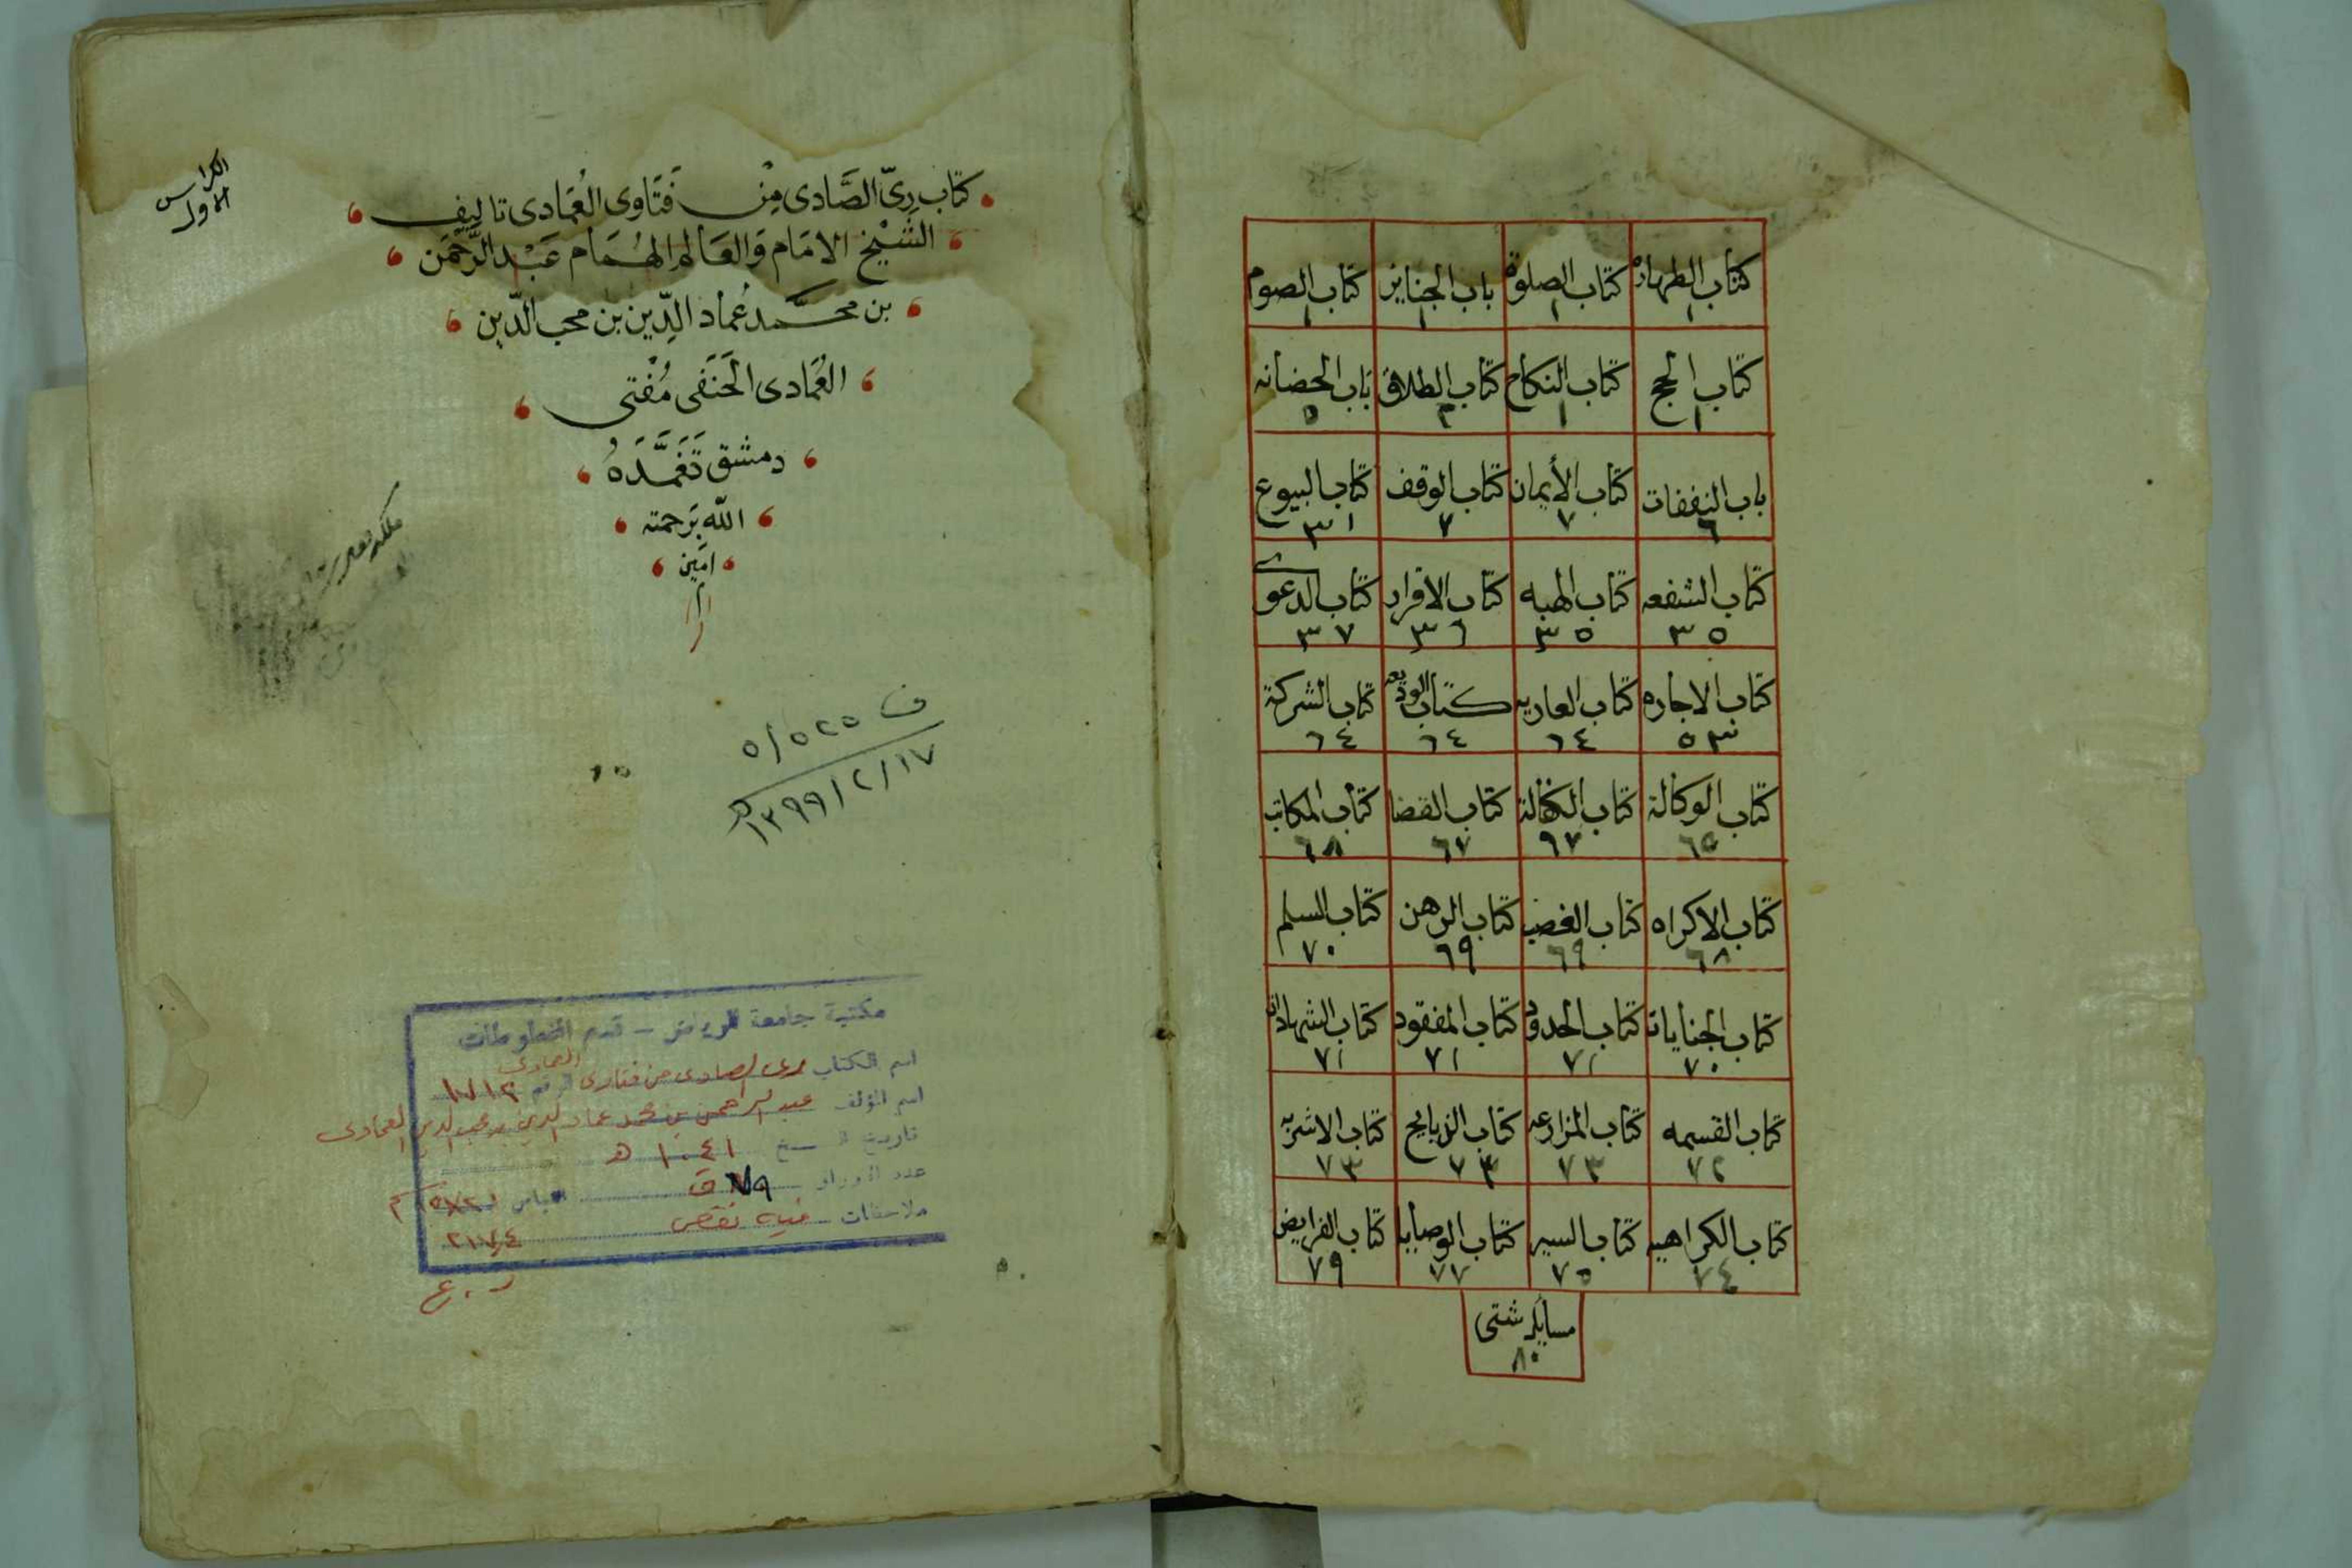 كتاب الطهارة كتاب الصلوة باب الجنايز كتاب الصوم
١ ١ ١ ١
كتاب الحج كتاب النكاح كتاب الطلاق باب الحضانه
١ ١ ٣ ٥
باب النفقات كتاب الأيمان كتاب الوقف كتاب البيوع
٦ ٧ ٧ ٣١
كتاب الشفعه كتاب الهبه كتاب الاقرار كتاب الدعوى
٣٥ ٣٥ ٣٦ ٣٧
كتاب الاجاره كتاب العاريه كتاب الوديعه كتاب الشركة
٥٣ ٦٤ ٦٤ ٦٤
كتاب الوكالة كتاب الكفالة كتاب القضا كتاب المكاتب
٦٥ ٦٧ ٦٧ ٦٨
كتاب الاكراه كتاب الغصب كتاب الرهن كتاب السلم
٦٨ ٦٩ ٦٩ ٧٠
كتاب الجنايات كتاب الحدود كتاب المفقود كتاب الشهادات
٧٠ ٧١ ٧١ ٧١
كتاب القسمه كتاب المزارعه كتاب الذبايح كتاب الاشربه
٧٢ ٧٣ ٧٣ ٧٣
كتاب الكراهيه كتاب السير كتاب الوصايا كتاب الفرايض
٧٤ ٧٥ ٧٧ ٧٩
مسايل شتى
٨٠
الكراس
الاول
كتاب رِيّ الصَّادى مِنْ فَتَاوى العُمَادى تاليف
الشَّيْخ الامَام وَالعَالم الهُمَام عَبْد الرَّحْمَن
بن محَمَّد عُماد الدِّين بن محب الدّين
العُمَادى الحَنَفى مُفْتى
دمشق تَغَمَّدَهُ
الله بَرحمته
امَين
ف ٥/٥٢٥
١٣٩٩/٢/١٧ هـ
مكتبة جامعة الرياض - قسم المخطوطات
اسم الكتاب رى الصادى من فتاوى العمادى الرقم ١٧١٢
اسم المؤلف عبد الرحمن بن محمد عماد الدين بن محب الدين العمادى
تاريخ النسخ ١٠٤١ هـ
عدد الأوراق ٧٩ ق القياس
ملاحظات فيه نقص
٢١٧٫٤